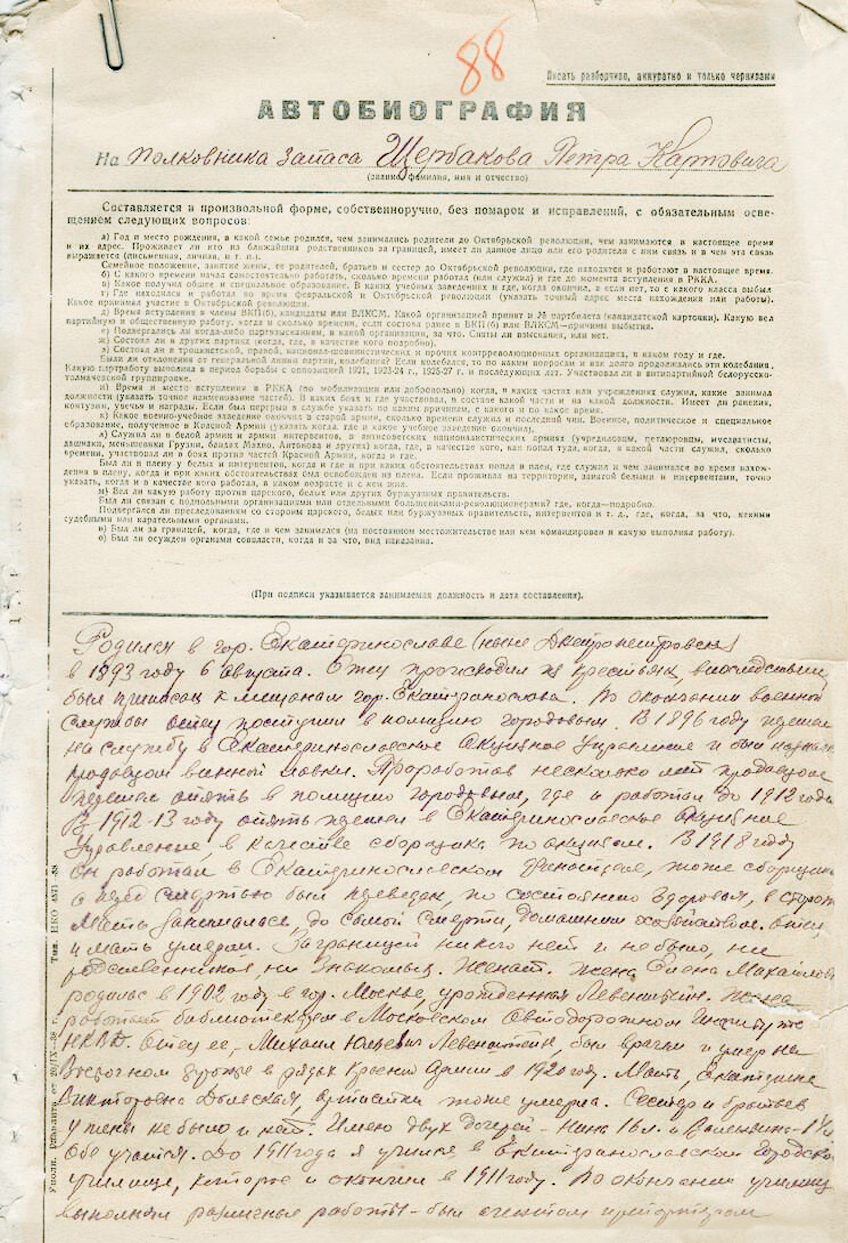 88
Писать разборчиво, аккуратно и только чернилами
АВТОБИОГРАФИЯ
На полковника запаса Щербакова Петра Карповича
(звание, фамилия, имя и отчество)
Составляется в произвольной форме, собственноручно, без помарок и исправлений, с обязательным осве-
щением следующих вопросов:
а) Год и место рождения, в какой семье родился, чем занимались родители до Октябрьской революции, чем занимаются в настоящее время
и их адрес. Проживает ли кто из ближайших родственников за границей, имеет ли данное лицо или его родители с ним связь и в чем эта связь
выражается (письменная, личная, и т. п.).
Семейное положение, занятие жены, ее родителей, братьев и сестер до Октябрьской революции, где находятся и работают в настоящее время.
б) С какого времени начал самостоятельно работать, сколько времени работал (или служил) и где до момента вступления в РККА.
в) Какое получил общее и специальное образование. В каких учебных заведениях и где, когда окончил, а если нет, то с какого класса выбыл
г) Где находился и работал во время февральской и Октябрьской революции (указать точный адрес места нахождения или работы).
Какое принимал участие в Октябрьской революции.
д) Время вступления в члены ВКП(б), кандидаты или ВЛКСМ. Какой организацией принят и № партбилета (кандидатской карточки). Какую вел
партийную и общественную работу, когда и сколько времени, если состоял ранее в ВКП(б) или ВЛКСМ—причины выбытия.
е) Подвергались ли когда-либо партвзысканиям, в какой организации, за что. Сняты ли взыскания, или нет.
ж) Состоял ли в других партиях (когда, где, в качестве кого подробно).
з) Состоял ли в троцкистской, правой, национал-шовинистических и прочих контрреволюционных организациях, в каком году и где.
Были ли отклонения от генеральной линии партии, колебания? Если колебался, то по каким вопросам и как долго продолжались эти колебания.
Какую партработу выполнял в период борьбы с оппозицией 1921, 1923-24 г., 1925-27 г. и последующих лет. Участвовал ли в антипартийной белорусско-
толмачевской группировке.
и) Время и место вступления в РККА (по мобилизации или добровольно) когда, в каких частях или учреждениях служил, какие занимал
должности (указать точные наименования частей). В каких боях и где участвовал, в составе какой части и на какой должности. Имеет ли ранения,
контузии, увечья и награды. Если был перерыв в службе указать по каким причинам, с какого и по какое время.
к) Какое военно-учебное заведение окончил в старой армии, сколько времени служил и последний чин. Военное, политическое и специальное
образование, полученное в Красной Армии (указать когда, где и какое учебное заведение окончил).
л) Служил ли в белой армии и армии интервентов, в антисоветских националистических армиях (учредиловцы, петлюровцы, муссаватисты,
дашнаки, меньшевики Грузии, бандах Махно, Антонова и других) когда, где, в качестве кого, как попал туда, когда, в какой части служил, сколько
времени, участвовал ли в боях против частей Красной Армии, когда и где.
Был ли в плену у белых и интервентов, когда и где и при каких обстоятельствах попал в плен, где служил и чем занимался во время нахож-
дения в плену, когда и при каких обстоятельствах был освобожден из плена. Если проживал на территории, занятой белыми и интервентами, точно
указать, когда и в качестве кого работал, в каком возрасте и с кем жил.
м) Вел ли какую работу против царского, белых или других буржуазных правительств.
Был ли связан с подпольными организациями или отдельными большевиками-революционерами? где, когда—подробно.
Подвергался ли преследованиям со стороны царского, белых или буржуазных правительств, интервентов и т. д., где, когда, за что, какими
судебными или карательными органами.
н) Был ли за границей, когда, где и чем занимался (на постоянном местожительстве или кем командирован и какую выполнял работу).
о) Был ли осужден органами соввласти, когда и за что, вид наказания.
(При подписи указывается занимаемая должность и дата составления).
Родился в гор. Екатеринославе (ныне Днепропетровск)
в 1893 году 6 августа. Отец происходил из крестьян, впоследствии
был приписан к мещанам гор. Екатеринослава. По окончании военной
службы отец поступил в полицию городовым. В 1896 году перешел
на службу в Екатеринославское Акцизное Управление и был назначен
продавцом винной лавки. Проработав несколько лет продавцом
перешел опять в полицию городовым, где и работал до 1912 года
В 1912-13 году опять перешел в Екатеринославское акцизное
Управление, в качестве сборщика по акцизам. В 1918 году
он работал в Екатеринославском Финотделе, тоже сборщиком
а перед смертью был переведен, по состоянию здоровья, в сторожа
Мать занималась, до самой смерти, домашним хозяйством. Отец
и мать умерли. Заграницей никого нет и не было, ни
родственников, ни знакомых. Женат. Жена Елена Михайловна
родилась в 1902 году в гор. Москве, урожденная Левенштейн. Жена
работает библиотекарем в Московском Автодорожном Институте
НКВД. Отец ее, - Михаил Юльевич Левенштейн, был врачем и умер на
Восточном фронте в рядах Красной Армии в 1920 году. Мать, Екатерина
Викторовна Дольская, артистка тоже умерла. Сестер и братьев
у жены не было и нет. Имею двух дочерей - Нина 16 л. и Валентина -
Обе учатся. До 1911 года я учился в Екатеринославском Городском
училище, которое и окончил в 1911 году. По окончании училища
выполнял различные работы - был агентом
Уполн. Главлита от 20/IX—38 г.
Тип. НКО